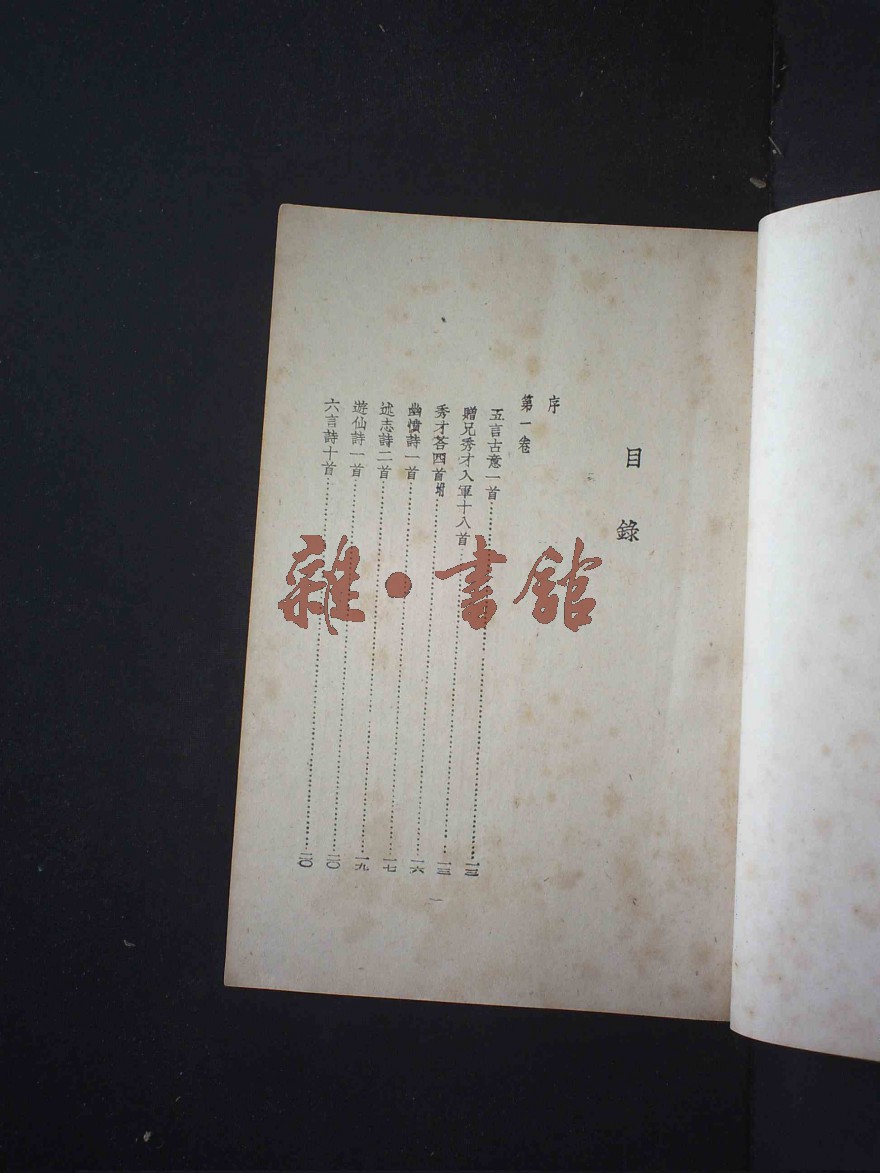 目錄
序
第一卷
五言古意一首……一三
贈兄秀才入軍十八首……一三
秀才荅四首附……一六
幽憤詩一首……一七
述志詩二首……一九
遊仙詩一首……二〇
六言詩十首……二〇
一
雜·書館